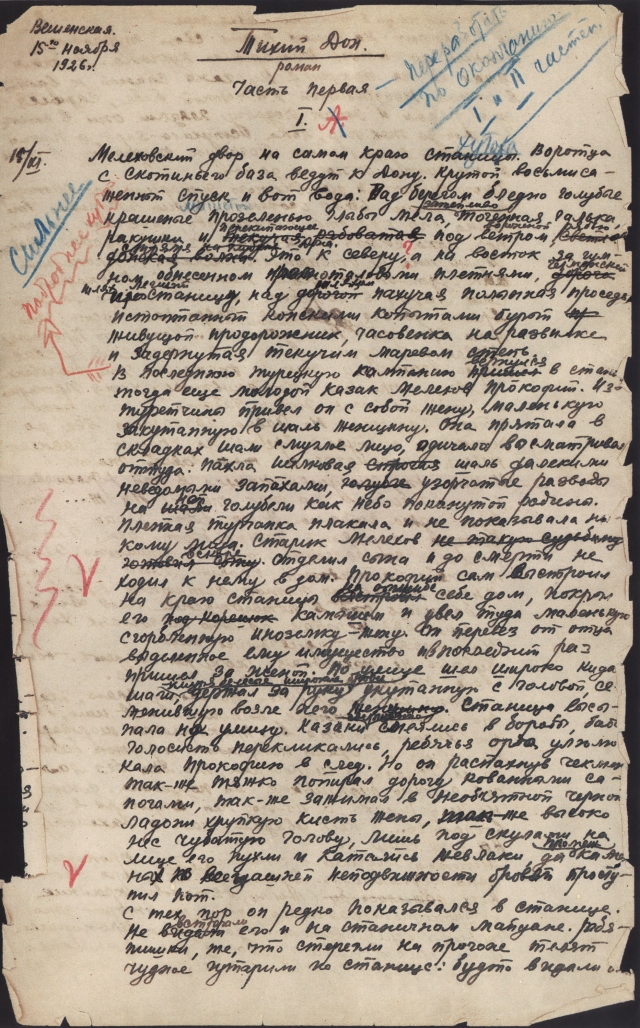 Вешенская.
15го ноября
1926 г.
Тихий Дон.
роман
Часть первая
I.
Переработать
По окончании
I и II частей.
15/XI.
Сильнее
подробнее
Мелеховский двор на самом краю станицы. Воротца
с скотиньего база ведут к Дону. Крутой восьмиса-
женный спуск и вот вода: Над берегом бледно голубые
крашеные прозеленью глыбы мела, точеная галька
ракушки и перекипающее под ветром
Это к северу, а на восток за гум-
ном обнесенном плетнями,
станицу, над пахучая полынная проседь
истоптанный конскими копытами бурый
живущой придорожник, часовенка на развилке
и задернутая текучим маревом степь.
В последнюю турецкую кампанию в стани
тогда еще молодой казак Мелехов Прокофий. Из
туретчины привел он с собой жену, маленькую
закутанную в шаль женщину. Она прятала в
складках шали смуглое лицо, одичало высматривая
оттуда. Пахла шелковая шаль далекими
неведомыми запахами, голубые узорчатые разводы
на голубели как небо покинутой родины.
Пленная турчанка плакала и не показывала ни-
кому лица. Старик Мелехов не
Отделил сына и до смерти не
ходил к нему в дом. Прокофий сам выстроил
на краю станицы себе дом, покрыл
его камышом и увел туда маленькую
сгорбленную иноземку-жену. Он перевез от отца
выделенное ему имущество и в последний раз
пришел за женой. По улице шел широко кидая
шаги, держал за руку укутанную с головой, се-
менившую возле него Станица высы-
пала на улицу. Казаки смеялись в бороды, бабы
голосисто перекликались, ребячья орда улюлю-
кала Прокофию в след. Но он распахнув чекмень
так-же тяжко попирал дорогу коваными са-
погами, так-же зажимал в необъятной черной
ладони хрупкую кисть жены, так-же высоко
нес чубатую голову, лишь под скулами на
лице его пухли и катались желваки, да промеж
неподвижности бровей просту-
пил пот.
С тех пор он редко показывался в станице.
Не его и на станичном майдане. Ребя-
тишки, те, что стерегли на прогоне телят
чудное гутарили по станице: будто видали